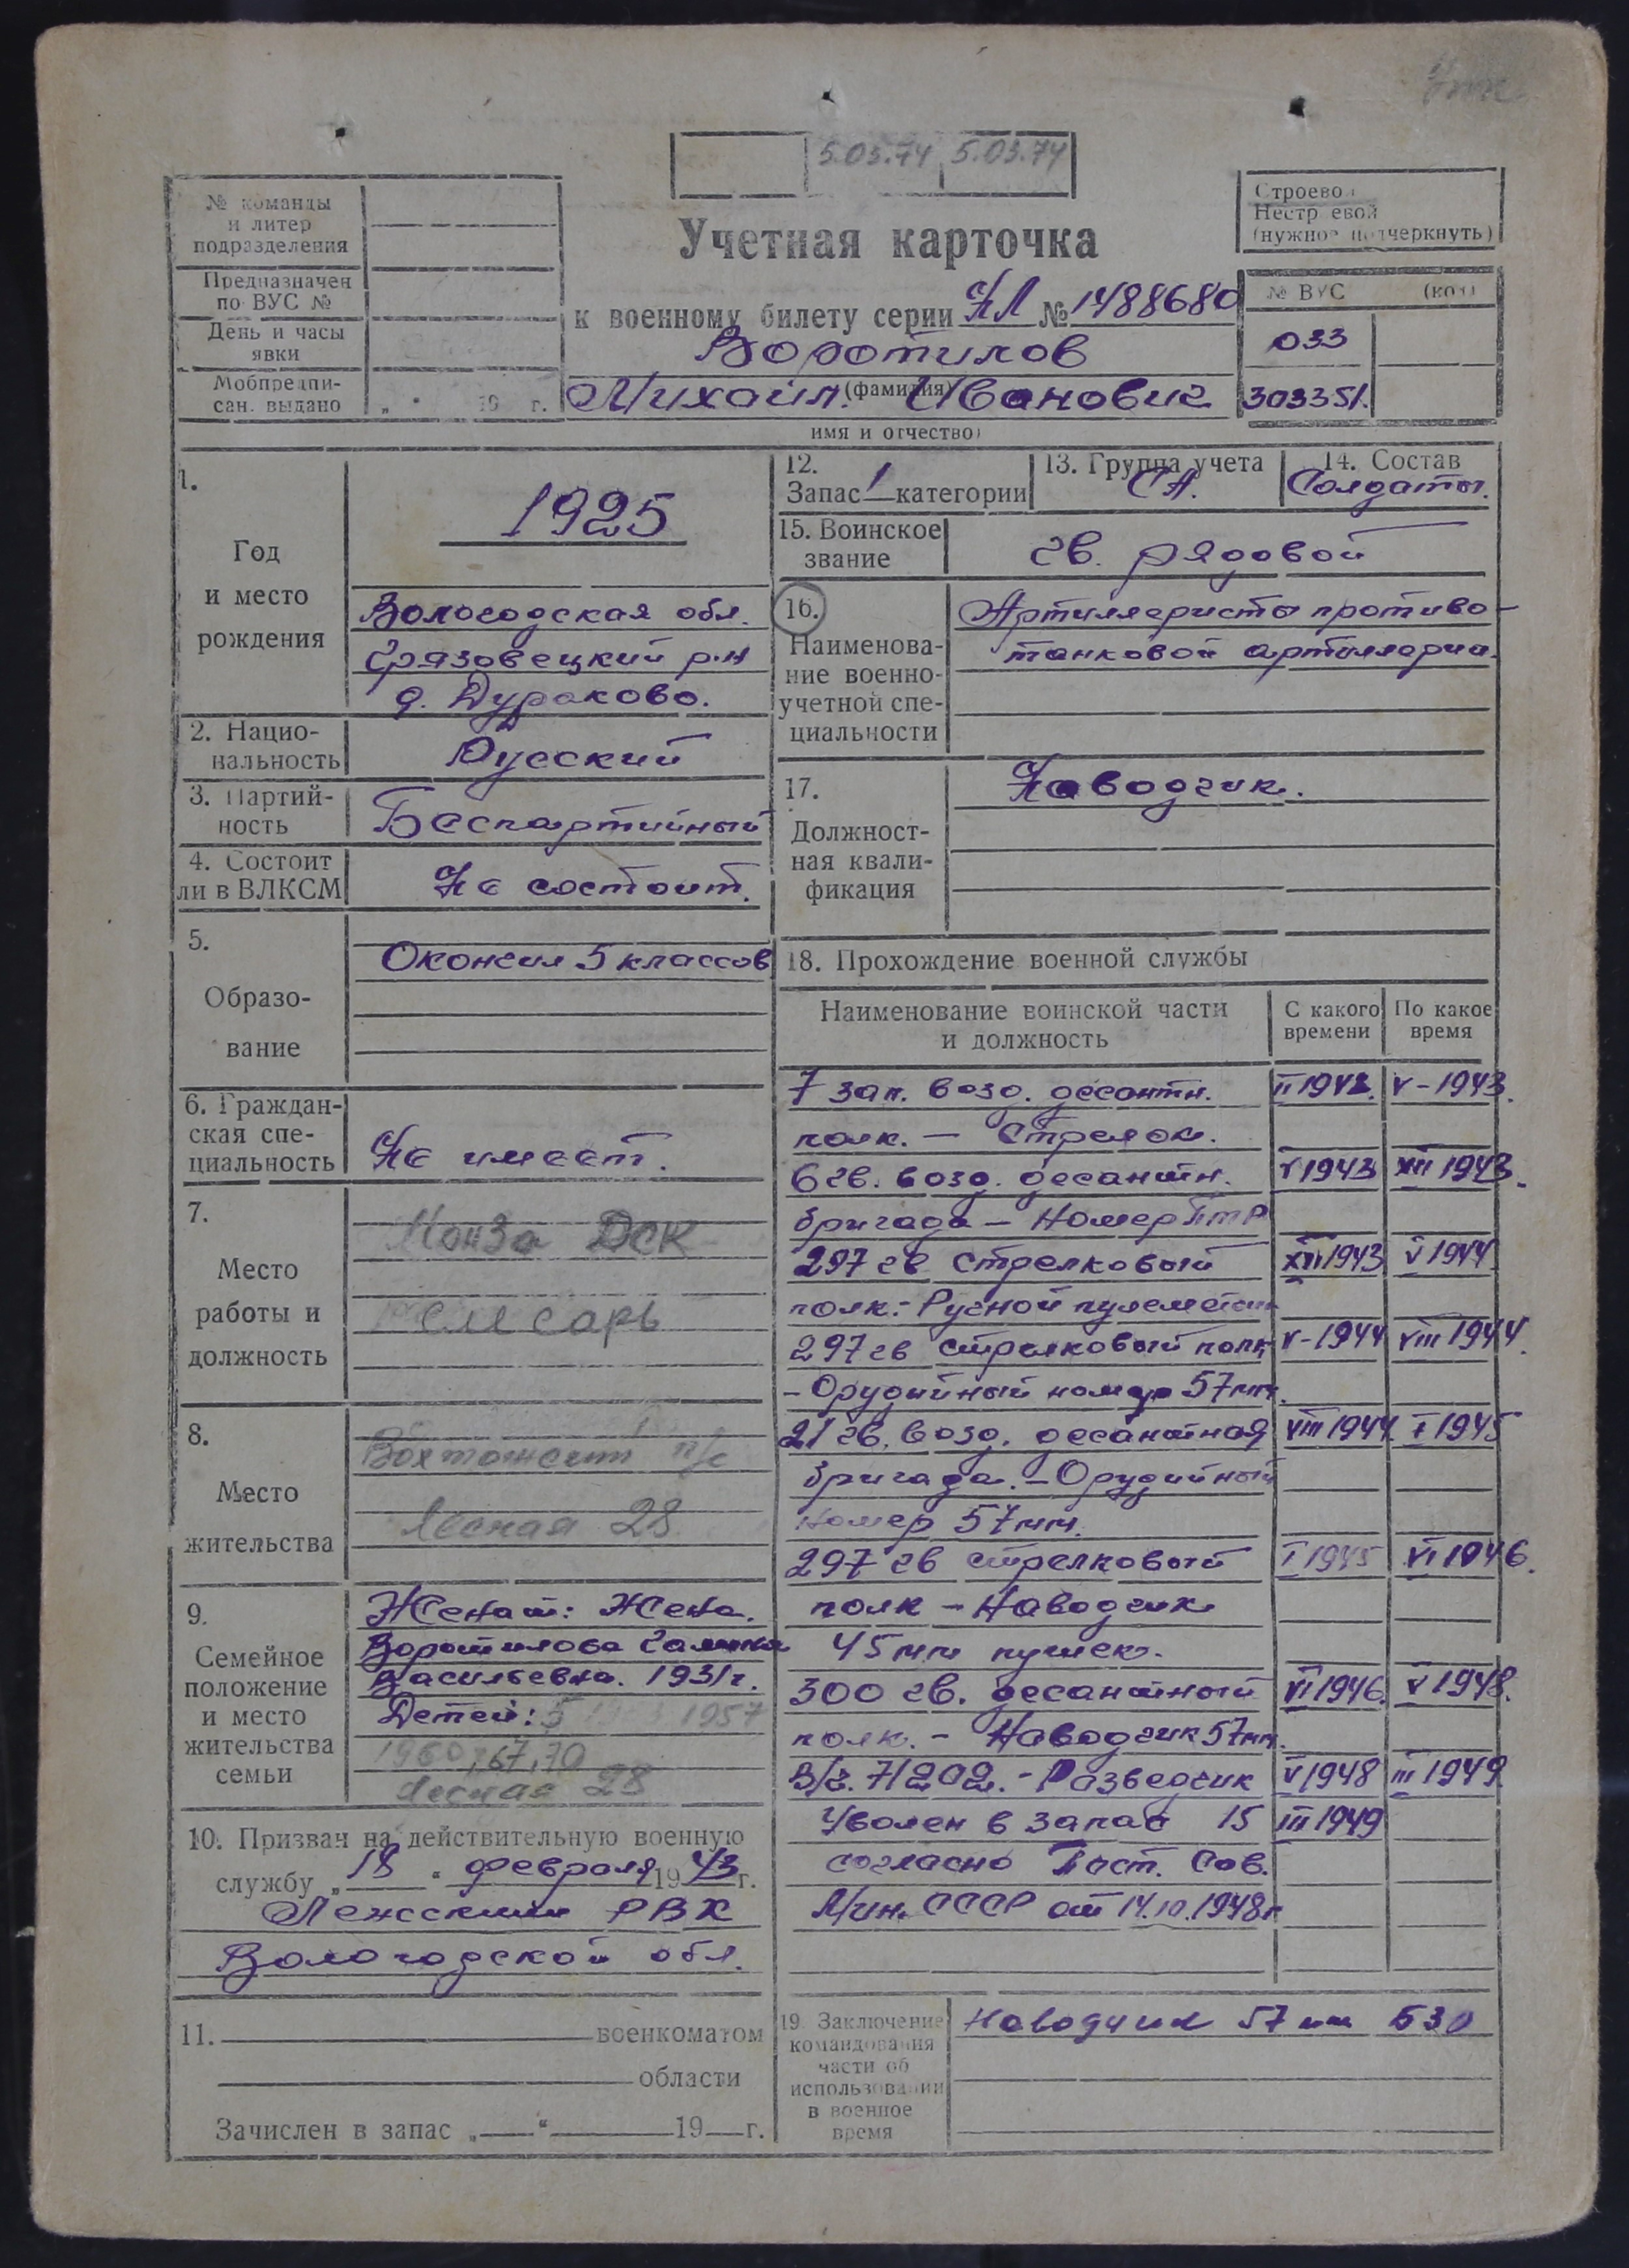 5.03.74 5.03.74
№ команды
и литер
подразделения
Предназначен
по ВУС №
День и часы
явки
Мобпредпи-
сан. выдано „ " 19 г.
Учетная карточка
к военному билету серии НЛ № 1488680
Воротилов
(фамилия)
Михаил Иванович
имя и отчество)
Строевой
Нестроевой
(нужное подчеркнуть)
№ ВУС (код)
033
303351.
1.
Год
и место
рождения
1925
Вологодская обл.
Грязовецкий р-н
д. Дураково.
2. Нацио-
нальность
Русский
3. Партий-
ность
Беспартийный
4. Состоит
ли в ВЛКСМ
Не состоит.
5.
Образо-
вание
Окончил 5 классов
6. Граждан-
ская спе-
циальность
Не имеет.
7.
Место
работы и
должность
Монза ДСК
слесарь
8.
Место
жительства
п/с
Лесная 28
9.
Семейное
положение
и место
жительства
семьи
Женат: Жена.
Воротилова Галина
Васильевна. 1931г.
Детей: 5 1957
1960, 67, 70
Лесная 28
10. Призван на действительную военную
службу „18" февраля 1943 г.
Лежским РВК
Вологодской обл.
11. военкоматом
области
Зачислен в запас „ " 19 г.
12.
Запас 1 категории
13. Группа учета
СА.
14. Состав
Солдаты.
15. Воинское
звание
гв. рядовой
16.
Наименова-
ние военно-
учетной спе-
циальности
Артиллеристы противо-
танковой артиллерии.
17.
Должност-
ная квали-
фикация
Наводчик.
18. Прохождение военной службы
Наименование воинской части
и должность
С какого
времени
По какое
время
7 зап. возд. десантн. II 1942. V-1943.
полк. - Стрелок.
6 гв. возд. десантн. V 1943 XII 1943.
бригада - Номер ПТР
297 гв стрелковый XII 1943 V 1944
полк.- Ручной пулеметчик
297 гв стрелковый полк V-1944 VIII 1944.
- Орудийный номер 57мм.
21 гв. возд. десантная VIII 1944 I 1945
бригада. - Орудийный
номер 57мм.
297 гв стрелковый I 1945 VI 1946.
полк - Наводчик
45мм пушек.
300 гв. десантный VI 1946. V 1948.
полк. - Наводчик 57мм.
В/ч. 71202. - Разведчик V 1948 III 1949
Уволен в запас 15 III 1949
согласно Пост. Сов.
Мин. СССР от 14.10.1948г
19. Заключение
командования
части об
использовании
в военное
время
Наводчик 57мм